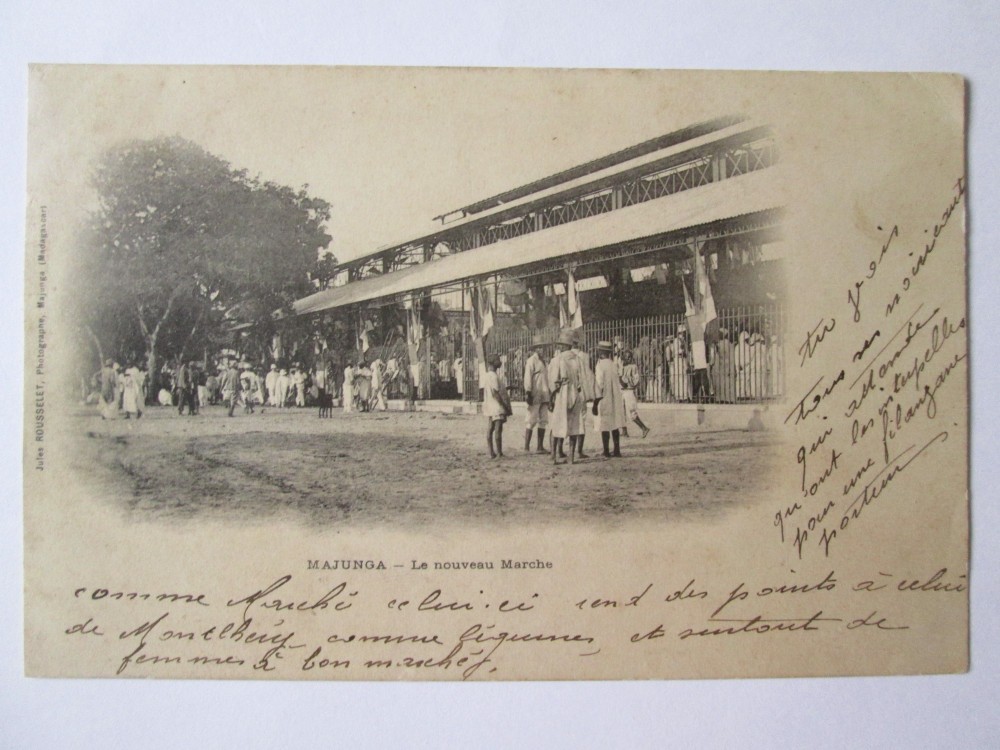 Jules ROUSSELET, Photographe, Majunga (Madagascar)
MAJUNGA — Le nouveau Marche
tu vois
tous ces
qui attende
qu'ont les
pour une filanzane
porteur.
comme Marché celui-ci rend des points à celui
de Montlhéry comme légumes, et surtout de
femmes à bon marché,